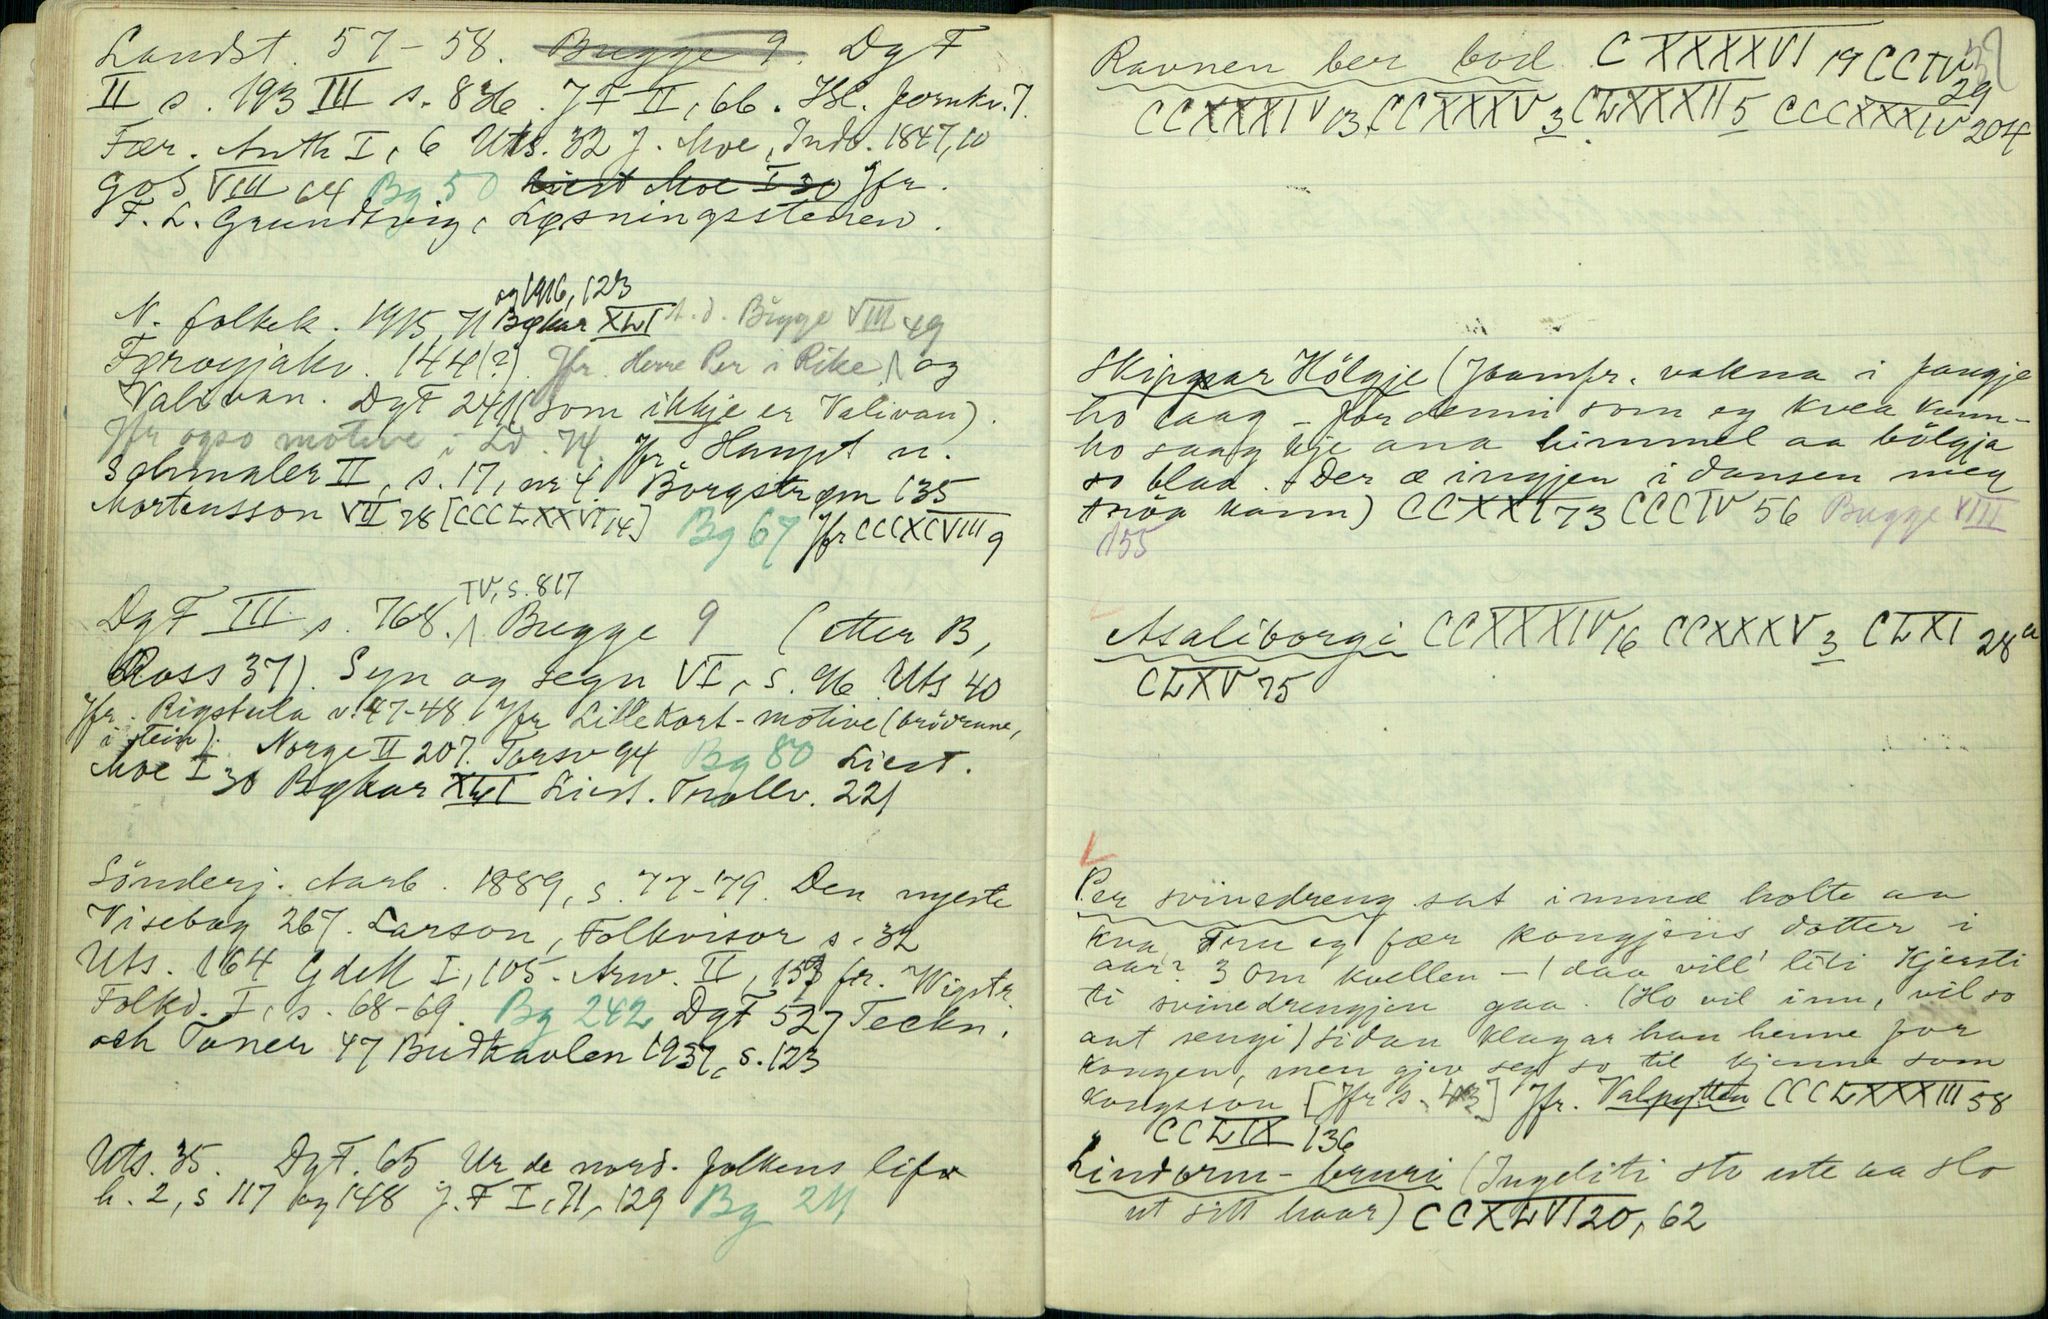 Landst. 57-58. Bugge 9. DgF
II s. 193 III s. 836. JF II, 66. Isl. fornkv. 7.
Fær. Anth I, 6 Uts. 32 J. Moe, Indb. 1847, 10
GoS VIII 64 Bg 50 Liest Moe I 30 Jfr.
F. L. Grundtvig, Løsningsstenen.
og 1916, 123
N. folkek. 1915, 71 Bøkar XLI A. d. Bugge VIII 49
Færoyjakv. 144(?) Jfr. Herre Per i Rike, og
Valivan. DgF 241 (som ikkje er Valivan).
Jfr ogso motive i Ld. 74. Jfr Haupt u.
Schmaler II, s. 17, nr 4. Borgstrøm 135
Mortensson VII 28 [CCCLXXVI 14] Bg 67 Jfr CCCXCVIII 9
IV, s. 817
DgF III s. 768. Bugge 9 (etter B,
Ross 37). Syn og segn VI, s. 96 Uts 40
Jfr. Rigstula v. 47-48. Jfr Lillekort-motive (brødrane,
i stein). Norge II 207. Torsv 94 Bg 80 Liest.
Moe I 30 Bøkar XLI Liest. Trollv. 221
Sönderj. Aarb. 1889, s. 77-79. Den nyeste
Visebog 267. Larson, Folkvisor s. 32
Uts. 164 GdM I, 105. Arw. II, 157 fr. Wigstr.
Folkd. I, s. 68-69. Bg 242 DgF 527 Teckn.
och Toner 47 Budkavlen 1937, s. 123
Uts. 35. DgF. 65 Ur de nord. folkens lif
h. 2, s 117 og 148 J. F I, 71, 129 Bg 24
Ravnen ber bod CXXXXVI 19 CCIV 29
CCXXXIV 13. CCXXXV 3 CLXXXII 5 CCCXXXIV 204
Skippar Hölgje (Jomfr. vakna i fangje
ho laag - for demi som eg kvea kunn-
ho saag kje ana himmel aa bölgja
so blaa. Der æ ingjen i dansen meg
tröa kann) CCXXI 73 CCCIV 56 Bugge VIII
155
Asaliborgi CCXXXIV 16 CCXXXV 3 CLXI 28a
CLXV 75
Per svinedreng sat i mmæ holte aa
kva, Tru eg fær kongjens dotter i
aar? 3 Om kvellen - (daa vill liti Kjersti
ti svinedrengjen gaa. (Ho vil inn, vil so
aat sengi) Sidan klagar han henne for
kongen, men gjev seg so til kjenne som
kongsson [Jfr s. 43] Jfr. Valpytten CCCLXXXIII 58
CCLIX 136
Lindorm-bruri (Ingeliti sto ute aa slo
ut sitt haar) CCXLVI 20, 62